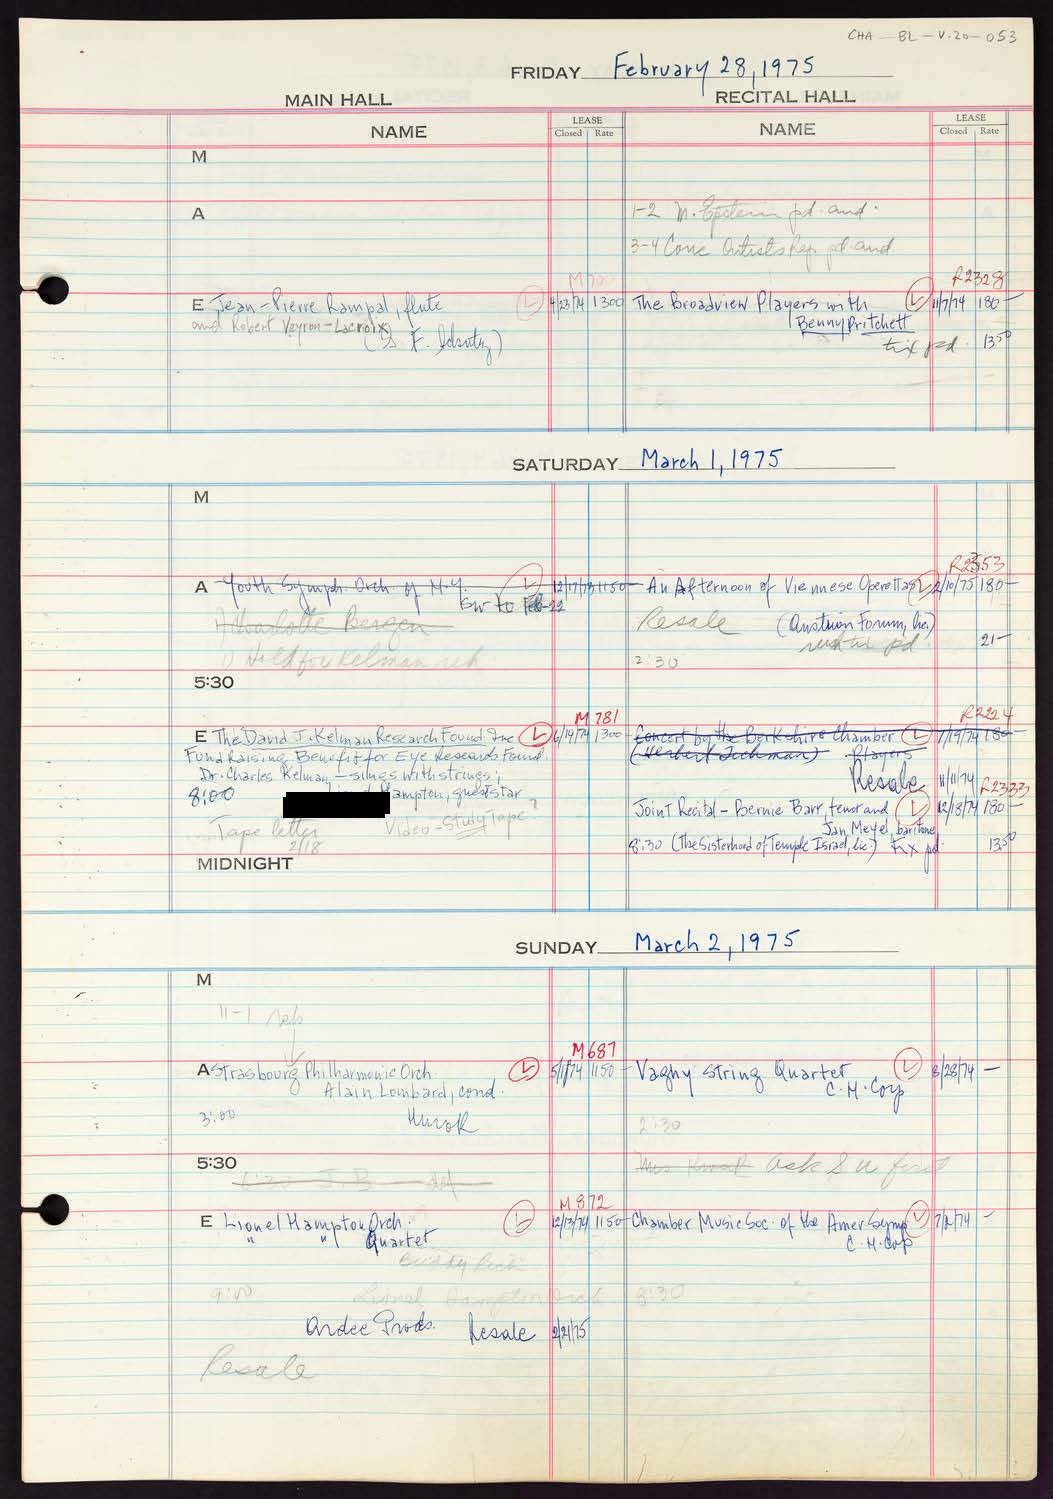 CHA - BL - V.20 - 053
FRIDAY February 28, 1975
MAIN HALL
RECITAL HALL
NAME
LEASE
Closed Rate
NAME
LEASE
Closed Rate
M
A
1-2 M. Epstein pd. aud.
3-4 Conc Artists Rep. pd. aud
M 700
R2328
E Jean-Pierre Rampal, flute L 4/23/74 1300
and Robert Veyron-Lacroix
The Broadview Players with L 11/7/74 180 -
Benny Pritchett
tix pd. 13 50
SATURDAY March 1, 1975
M
R2353
A Youth Symph. Orch. of N.Y. L 12/17/73 1150
to Feb 22
1) Charlotte Bergen
1) Hold for Kelman reh.
An Afternoon of Viennese Operettas L 2/10/75 180 -
Resale (Austrian Forum, Inc.)
tix pd. 21 -
2:30
5:30
M 781
R2224
E The David J. Kelman Research Found. Inc L 6/14/74 1300
Fund Raising Benefit for Eye Research Found.
Dr. Charles Kelman - sings with strings;
8:00 Hampton, guest star
Tape letter Video-Study Tape ?
2/18
Concert by the Berkshire Chamber L 7/19/74 180 -
Players
Resale 11/11/74
R2333
Joint Recital - Bernie Barr, tenor and L 12/13/74 180 -
Jan Meyel, baritone
8:30 (The Sisterhood of Temple Israel, Inc.) tix pd 13 50
MIDNIGHT
SUNDAY March 2, 1975
M
11-1 reh
M687
A Strasbourg Philharmonic Orch. L 5/1/74 1150
Alain Lombard, cond.
3:00 Hurok
Vaghy String Quartet L 3/28/74 -
C.M. Corp
2:30
5:30
ask S U first
M 872
E Lionel Hampton Orch. L 12/13/74 1150
" " Quartet
Buddy Rich
9:00 Lionel Hampton Orch
Chamber Music Soc. of the Amer Symp L 7/2/74 -
C.M. Corp
8:30
Ardee Prods. Resale 2/21/75
Resale